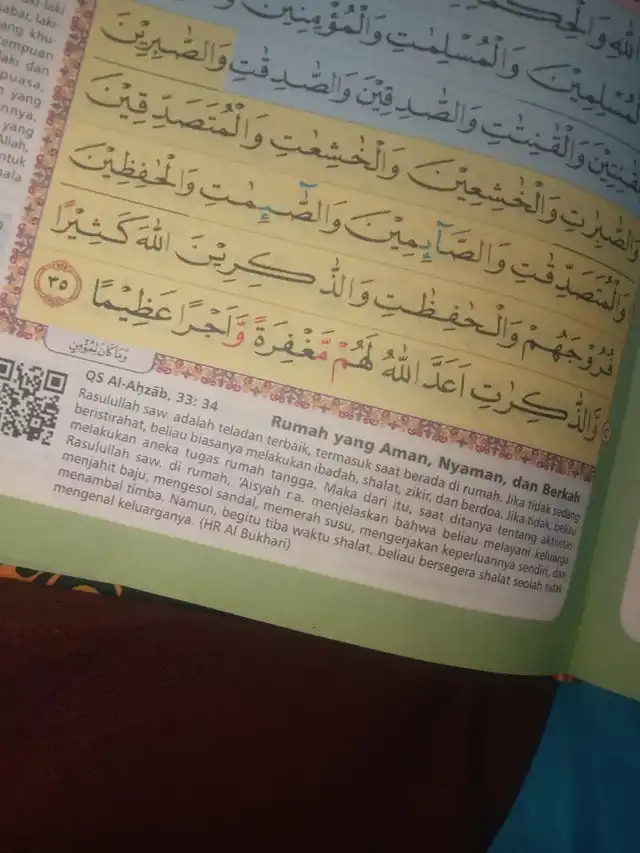 اللهِ وَالْحِكْمَةِ
لْمُسْلِمِيْنَ وَالْمُسْلِمٰتِ وَالْمُؤْمِنِيْنَ
وَالْقٰنِتٰتِ وَالصّٰدِقِيْنَ وَالصّٰدِقٰتِ وَالصّٰبِرِيْنَ
وَالصّٰبِرٰتِ وَالْخٰشِعِيْنَ وَالْخٰشِعٰتِ وَالْمُتَصَدِّقِيْنَ
وَالْمُتَصَدِّقٰتِ وَالصَّاۤىِٕمِيْنَ وَالصّٰۤىِٕمٰتِ وَالْحٰفِظِيْنَ
فُرُوْجَهُمْ وَالْحٰفِظٰتِ وَالذَّاكِرِيْنَ اللهَ كَثِيْرًا
وَّالذّٰكِرٰتِ اَعَدَّ اللهُ لَهُمْ مَّغْفِرَةً وَّاَجْرًا عَظِيْمًا ٣٥
وَمَا كَانَ لِمُؤْمِنٍ
QS Al-Aḥzāb, 33: 34
Rumah yang Aman, Nyaman, dan Berkah
Rasulullah saw. adalah teladan terbaik, termasuk saat berada di rumah. Jika tidak sedang
beristirahat, beliau biasanya melakukan ibadah, shalat, zikir, dan berdoa. Jika tidak, beliau
melakukan aneka tugas rumah tangga. Maka dari itu, saat ditanya tentang aktivitas
Rasulullah saw. di rumah, 'Aisyah r.a. menjelaskan bahwa beliau melayani keluarga
menjahit baju, mengesol sandal, memerah susu, mengerjakan keperluannya sendiri, dan
menambal timba. Namun, begitu tiba waktu shalat, beliau bersegera shalat seolah tidak
mengenal keluarganya. (HR Al Bukhari)
laki-laki
sabar, laki-
ang khu-
empuan
laki dan
puasa,
n yang
nnya,
yang
Allah,
ntuk